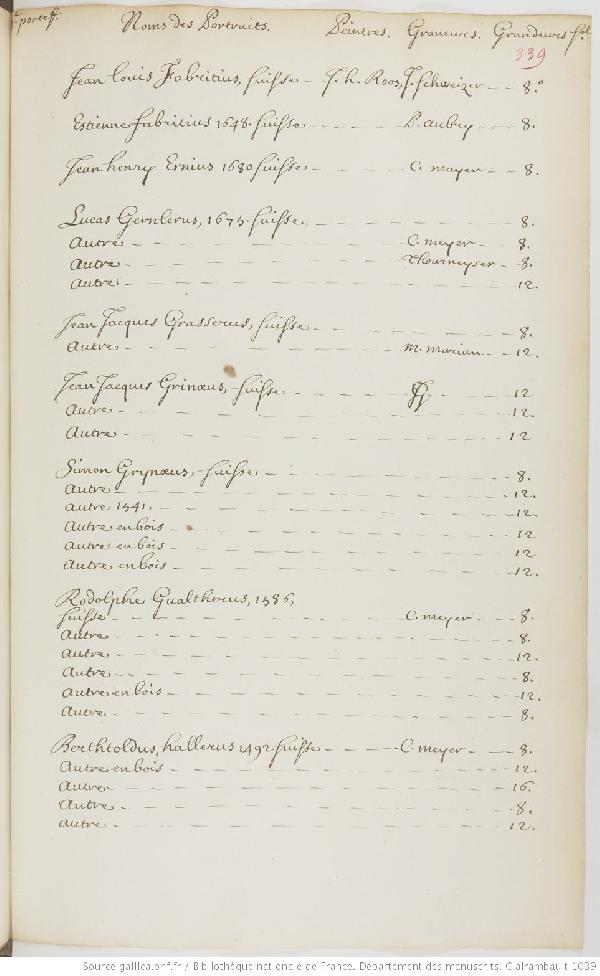 portef. Noms des Portraits. Peintres. Graveurs. Grandeurs fol.
339
Jean Louis Fabritius, suisse - J. h. Roos, J. Schweizer - - 8.°
Estienne fabritius 1648. suisse - - - - P. aubry - - - 8.
Jean henry Ernius 1680 suisse - - - - C. meyer - - 8.
Lucas Gernlerus, 1675. suisse. - - - - - - 8.
Autre - - - - - - C. meyer - - 8.
Autre - - - - - - Thourneyser - 8.
Autre - - - - - - - - - 12.
Jean Jacques Grasserus, suisse - - - - - - 8.
Autre - - - - - - m. merian - - 12.
Jean Jacques Grinœus, suisse - - - - - - 12
Autre - - - - - - - - - 12.
Autre - - - - - - - - - 12
Simon Grynœus, suisse - - - - - - 8.
Autre - - - - - - - - - 12.
Autre 1541. - - - - - - - - 12.
Autre en bois - - - - - - - - 12
Autre en bois - - - - - - - - 12
Autre en bois - - - - - - - - 12.
Rodolphe Gualtherus, 1586,
suisse - - - - - - C. meyer - - 8.
Autre - - - - - - - - - 8.
Autre - - - - - - - - - 12.
Autre - - - - - - - - - 8.
Autre en bois - - - - - - - - 12.
Autre - - - - - - - - - 8.
Berthtoldus, hallerus 1492. suisse - - - - C. meyer - - 8.
Autre en bois - - - - - - - - 12.
Autre - - - - - - - - - 16.
Autre - - - - - - - - - 8.
Autre - - - - - - - - - 12.
Source gallica.bnf.fr / Bibliothèque nationale de France. Département des manuscrits. Clairambault 1039